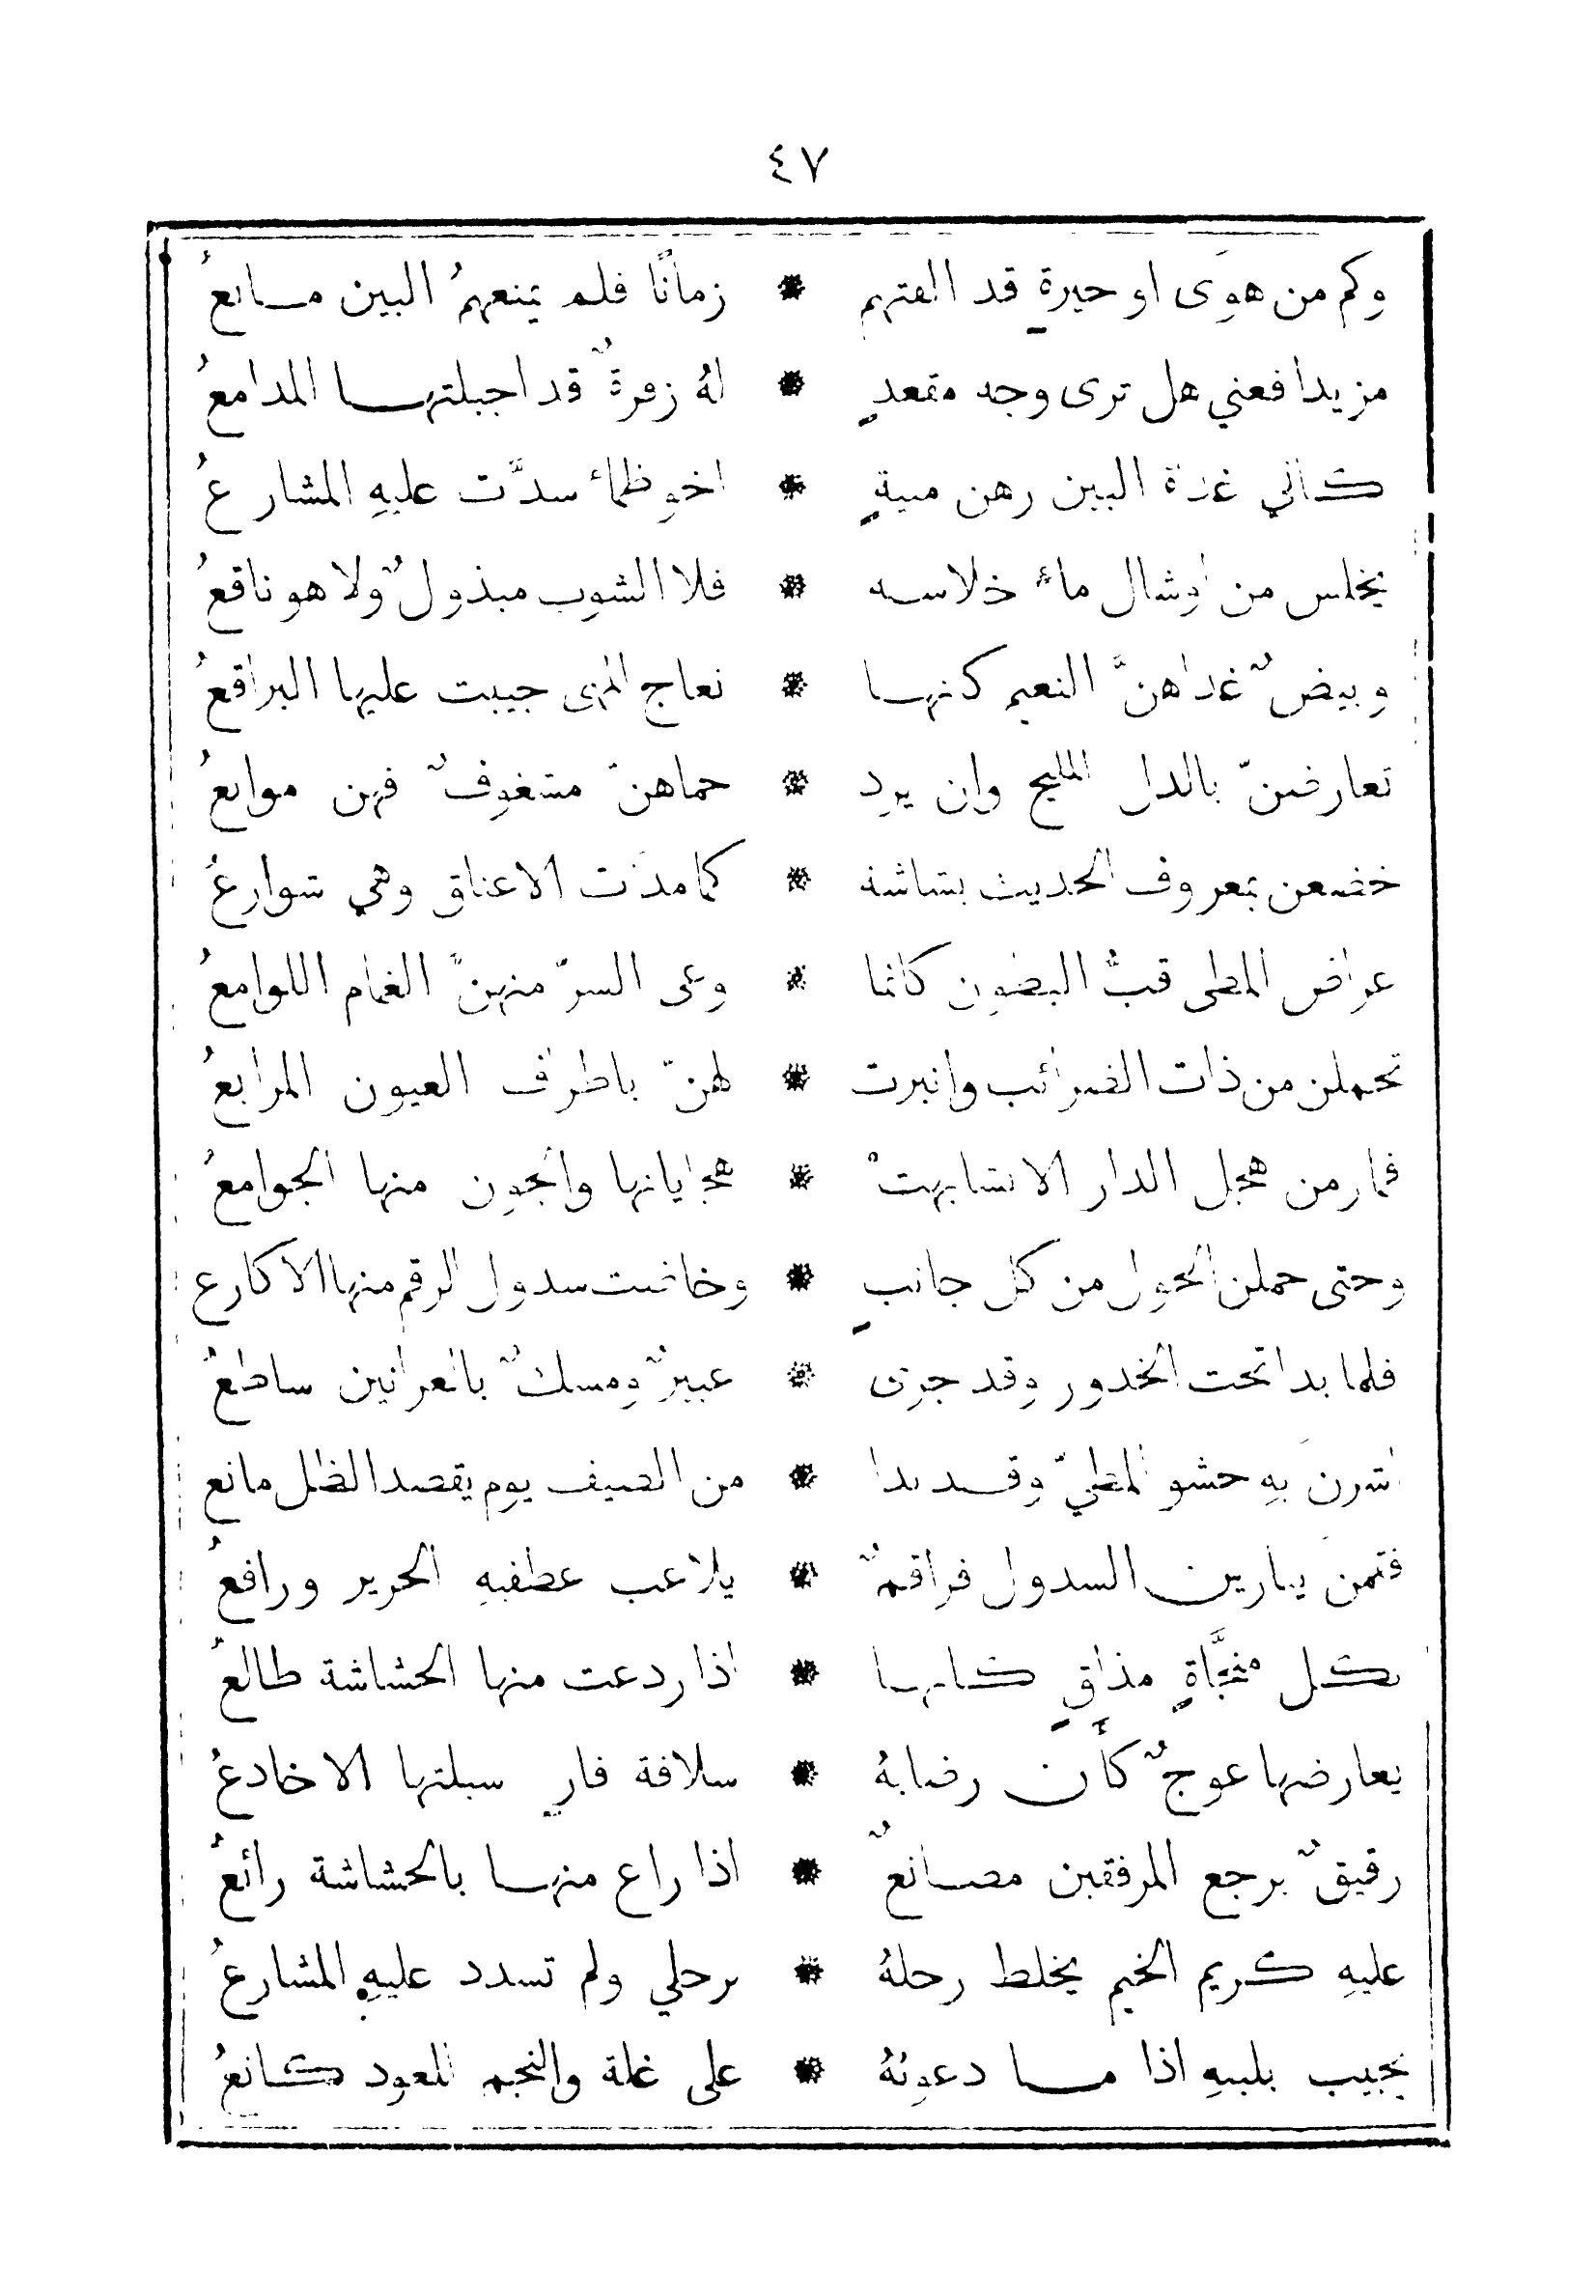 ٤٧
وكم من هوَى او حيرةٍ قد الفتهم * زمانًا فلم يمنعهمُ البين مانعُ
مزيدا فعني هل ترى وجه مقعدٍ * لهُ زفرةٌ قد اجبلتها المدامعُ
كأني غداة البين رهن منيةٍ * اخو ظماءٍ سدَّت عليهِ المشارعُ
يخلس من اوشال ماءٍ خلاسه * فلا الشوب مبذولٌ ولا هو ناقعُ
وبيضٌ غذاهنَّ النعيم كانها * نعاج المهى جيبت عليها البراقعُ
تعارضنّ بالدل المليح وان يرد * حماهنّ مشغوفٌ فهن موانعُ
خضعن بمعروف الحديث بشاشة * كما مدّت الاعناق وهي شوارعُ
عراض المطى قبُّ البطون كانما * وعى السرّ منهنّ الغمام اللوامعُ
تحملن من ذات الضرائب وانبرت * لهنّ باطراف العيون المرابعُ
فما رمن هجل الدار الا تشابهت * هجايانها والجون منها الجوامعُ
وحتى حملن الحول من كل جانبٍ * وخاضت سدول الرقم منها الاكارع
فلما بدا تحت الخدور وقد جرى * عبيرٌ ومسكٌ بالعرانين ساطعُ
اشرن بهِ حشو المطيّ وقد بدا * من الصيف يوم يقصد الظل مانع
فتمن يبارين السدول فراقمٌ * يلاعب عطفيهِ الحرير ورافعُ
بكل منجَّاةٍ مذاقٍ كانها * اذا ردعت منها الحشاشة طالعُ
يعارضها عوجٌ كأن رضابهُ * سلافة فارٍ سبلتها الاخادعُ
رقيقٌ برجع المرفقين مصانعٌ * اذا راع منها بالحشاشة رائعُ
عليهِ كريم الخيم يخلط رحلهُ * برحلي ولم تسدد عليهِ المشارعُ
يجيب بلبيهِ اذا ما دعوتهُ * على غلة والنجم للعود كانعُ